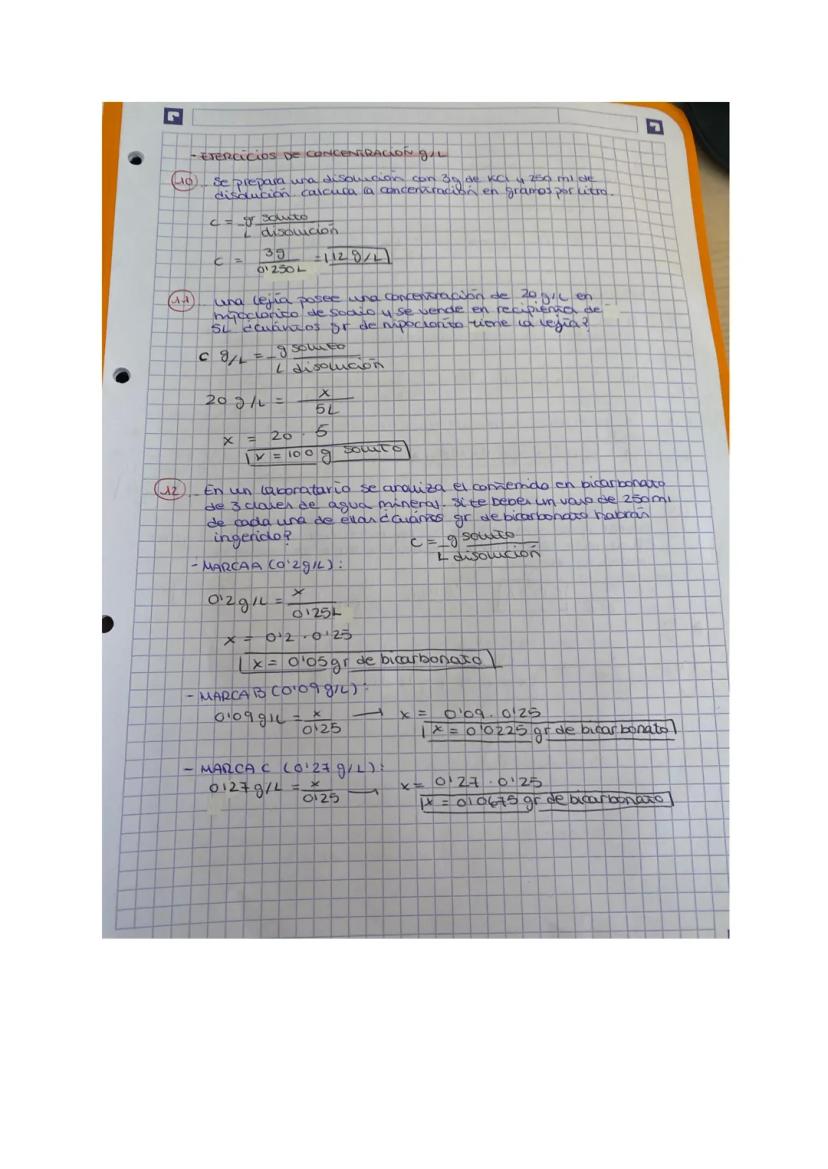 - EJERCICIOS DE CONCENTRACIÓN g/L
10. Se prepara una disolución con 3g de KCl y 250 ml de
disolución calcula la concentración en gramos por litro.
c = g soluto / L disolución
c = 3g / 0'250L = 12 g/L
11. Una lejía posee una concentración de 20 g/L en
hipoclorito de sodio y se vende en recipientes de
5L ¿cuántos gr de hipoclorito tiene la lejía?
c g/L = g soluto / L disolución
20 g/L = x / 5L
x = 20 · 5
x = 100 g soluto
12. En un laboratorio se analiza el contenido en bicarbonato
de 3 clases de agua mineral. Si te bebes un vaso de 250ml
de cada una de ellas ¿cuántos gr de bicarbonato habrás
ingerido?
c = g soluto / L disolución
- MARCA A (0'2g/L):
0'2g/L = x / 0'25L
x = 0'2 · 0'25
x = 0'05gr de bicarbonato
- MARCA B (0'09g/L):
0'09g/L = x / 0'25 → x = 0'09 · 0'25
x = 0'0225 gr de bicarbonato
- MARCA C (0'27 g/L):
0'27g/L = x / 0'25 → x = 0'27 · 0'25
x = 0'0675 gr de bicarbonato